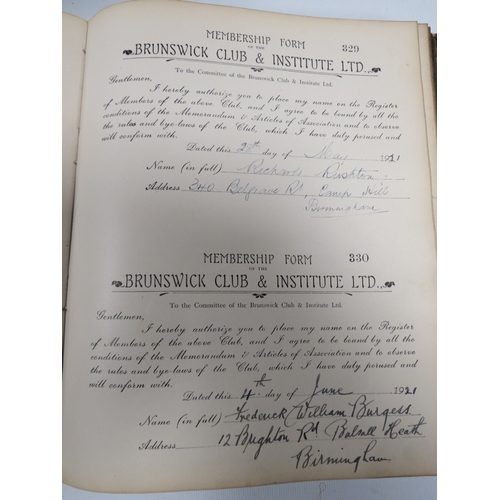 MEMBERSHIP FORM 329
OF THE
BRUNSWICK CLUB & INSTITUTE LTD.
To the Committee of the Brunswick Club & Institute Ltd.
Gentlemen,
I hereby authorize you to place my name on the Register
of Members of the above Club, and I agree to be bound by all the
conditions of the Memorandum & Articles of Association and to observe
the rules and bye-laws of the Club, which I have duly perused and
will conform with.
Dated this 20th day of May 1921
Name (in full) Richard Rushton
Address 240 Belgrave Rd, Camp Hill
Birmingham
MEMBERSHIP FORM 330
OF THE
BRUNSWICK CLUB & INSTITUTE LTD.
To the Committee of the Brunswick Club & Institute Ltd.
Gentlemen,
I hereby authorize you to place my name on the Register
of Members of the above Club, and I agree to be bound by all the
conditions of the Memorandum & Articles of Association and to observe
the rules and bye-laws of the Club, which I have duly perused and
will conform with.
Dated this 4th day of June 1921
Name (in full) Frederick William Burgess
Address 12 Brighton Rd Balsall Heath
Birmingham